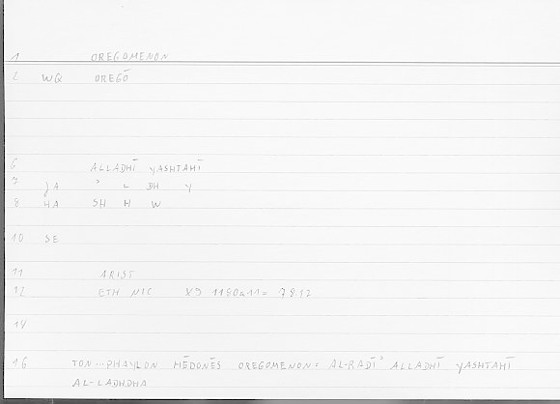 1 OREGOMENON
2 WQ OREGŌ
6 ALLADHĪ YASHTAHĪ
7 JA ʾ L DH Y
8 HA SH H W
10 SE
11 ARIST
12 ETH NIC X3 1150a11=
14
16 TON...PHAYLON HĒDONĒS OREGOMENON= AL-RADĪʾ ALLADHĪ YASHTAHĪ
AL-LADHDHA